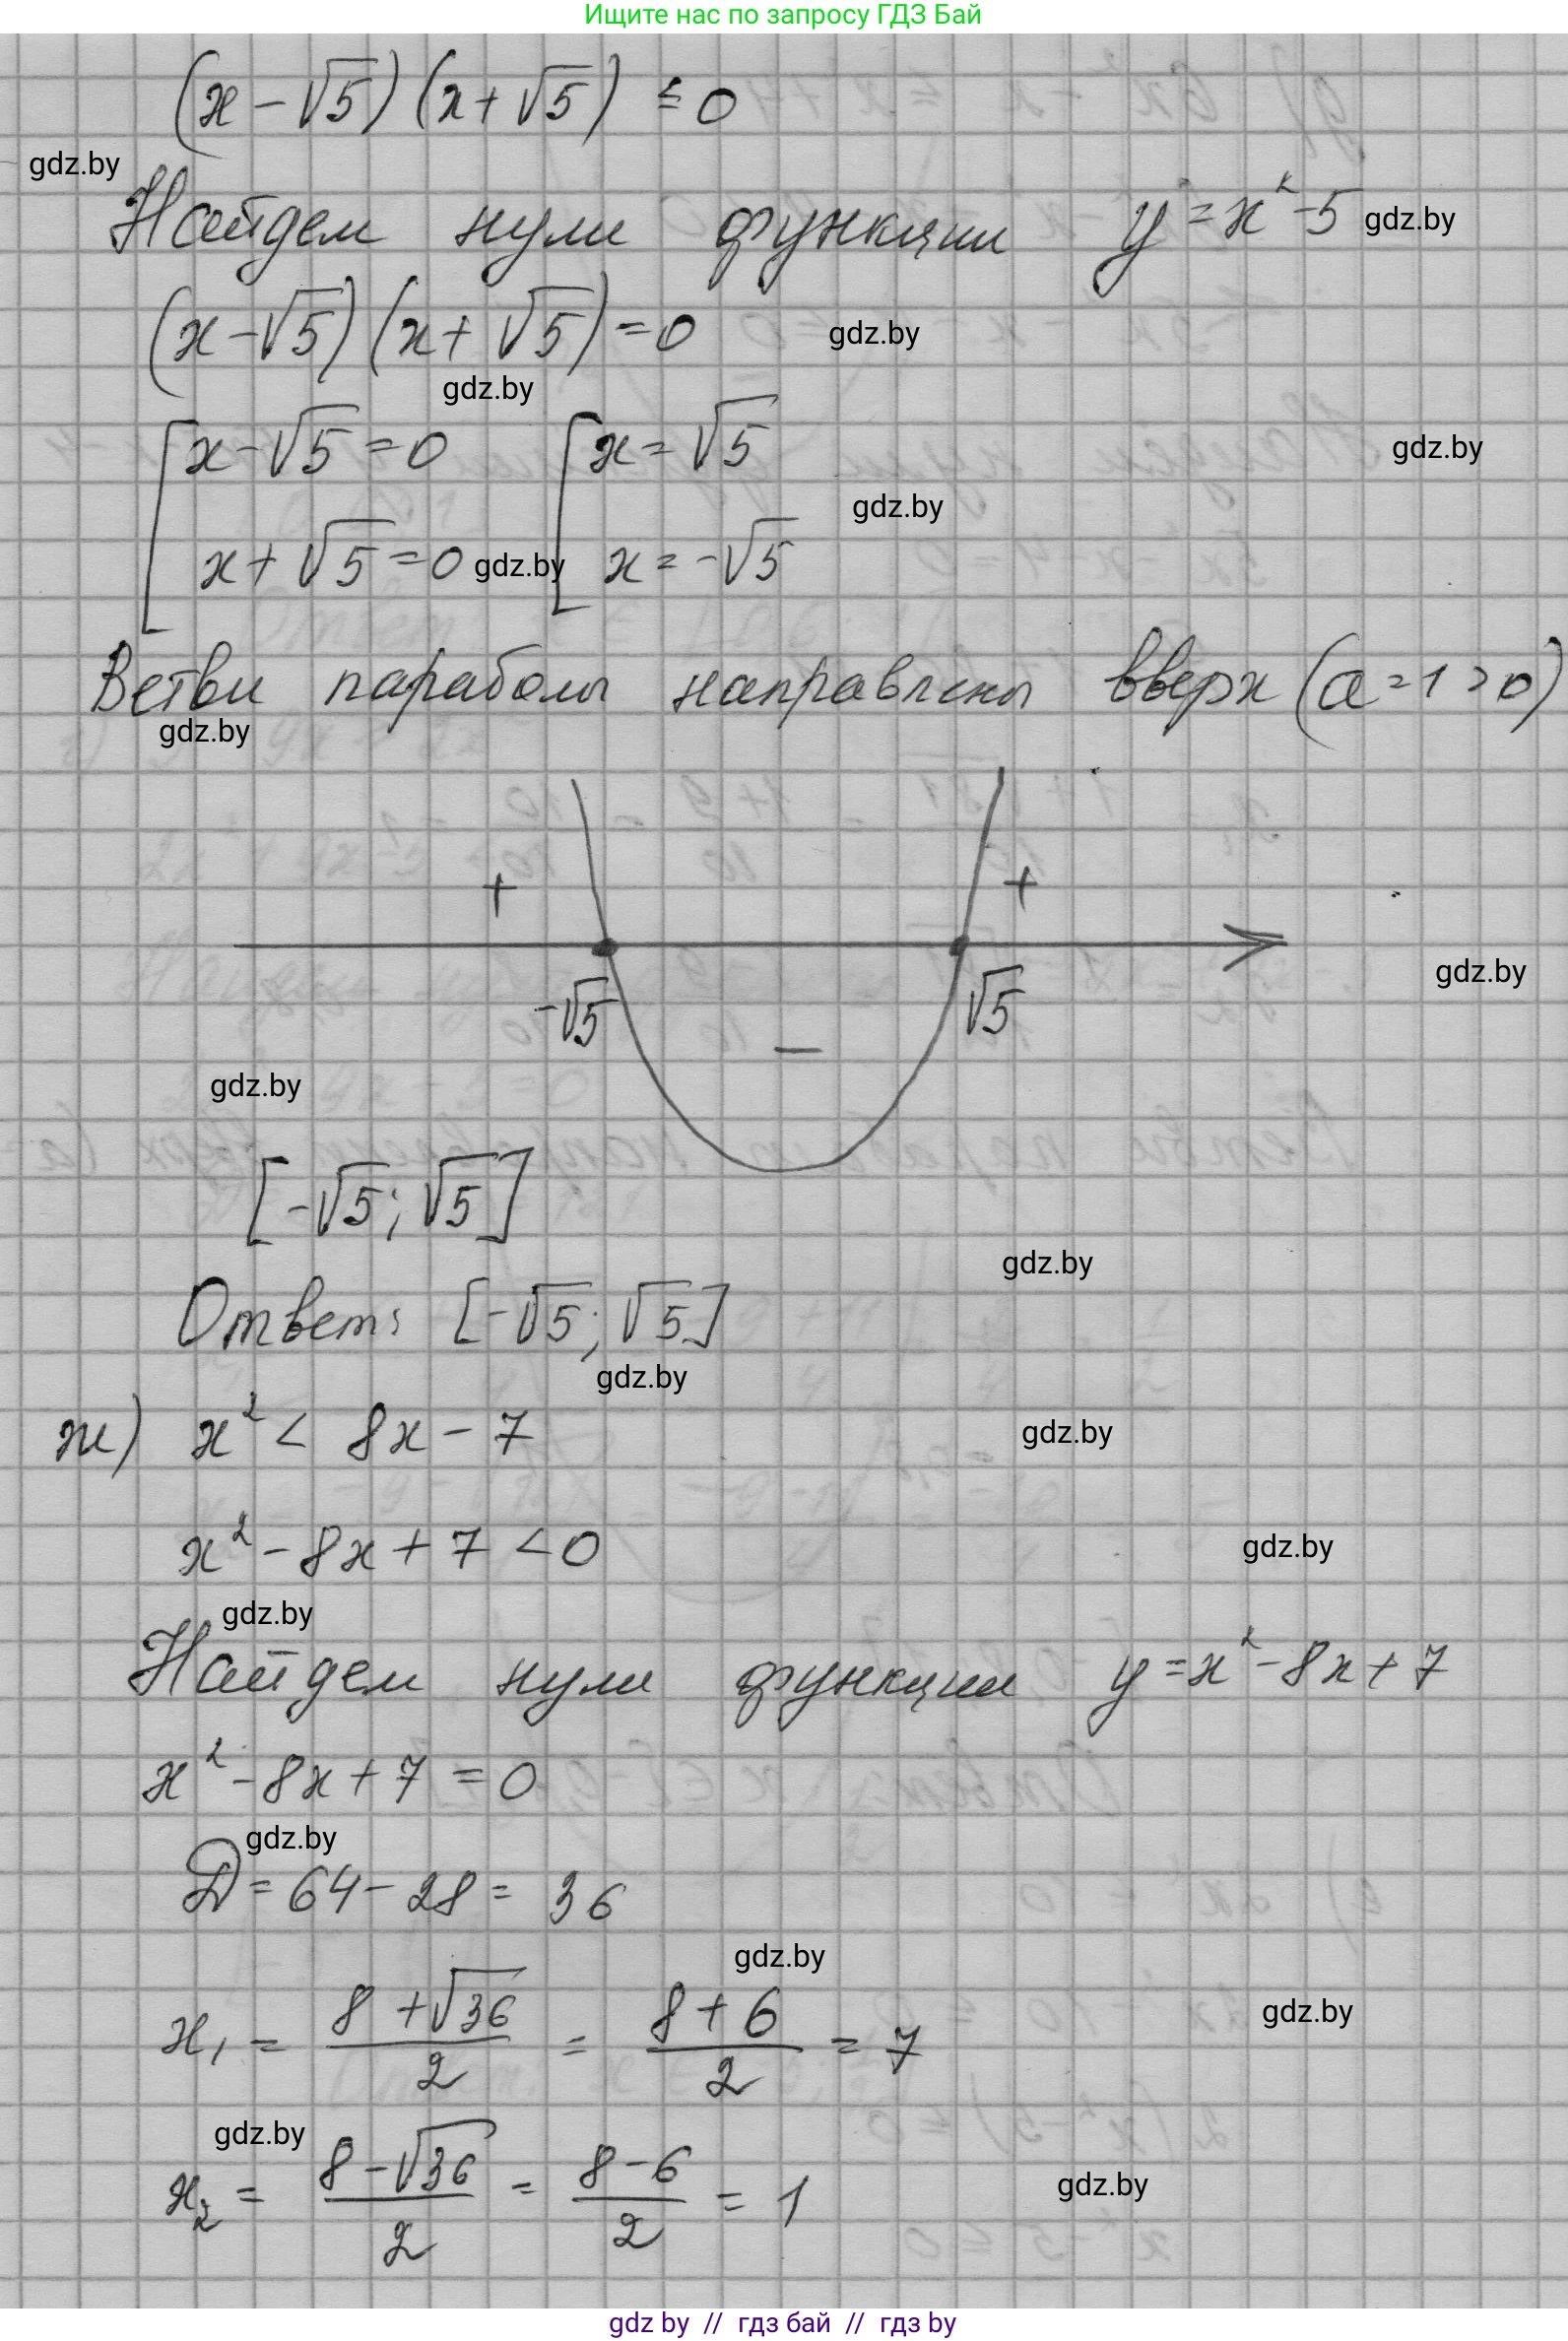 Ищите нас по запросу ГДЗ Бай
(x-√5)(x+√5) ≤ 0
gdz.by
Найдем нули функции y=x²-5 gdz.by
(x-√5)(x+√5)=0 gdz.by
gdz.by
[x-√5=0 [x=√5 gdz.by
gdz.by
x+√5=0 gdz.by x=-√5
Ветви параболы направлены вверх (a=1>0)
gdz.by
+ +
gdz.by
-√5 √5
−
gdz.by
[-√5;√5]
gdz.by
Ответ: [-√5;√5]
gdz.by
ж) x² < 8x-7 gdz.by
x²-8x+7<0 gdz.by
gdz.by
Найдем нули функции y=x²-8x+7
x²-8x+7=0
gdz.by
D=64-28=36
gdz.by
x₁ = (8+√36)/2 = (8+6)/2 = 7 gdz.by
gdz.by
x₂ = (8-√36)/2 = (8-6)/2 = 1 gdz.by
gdz by // гдз бай // гдз by